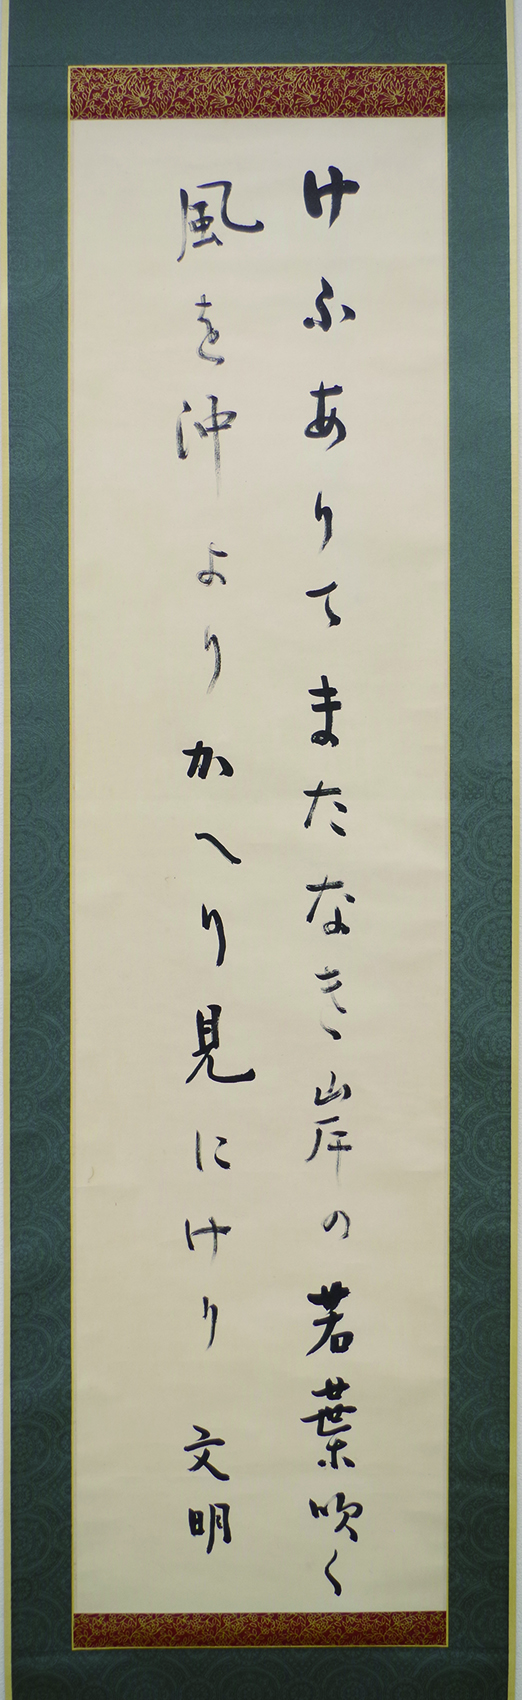 けふありてまたなき岸の若葉吹く
風を沖よりかへり見にけり 文明